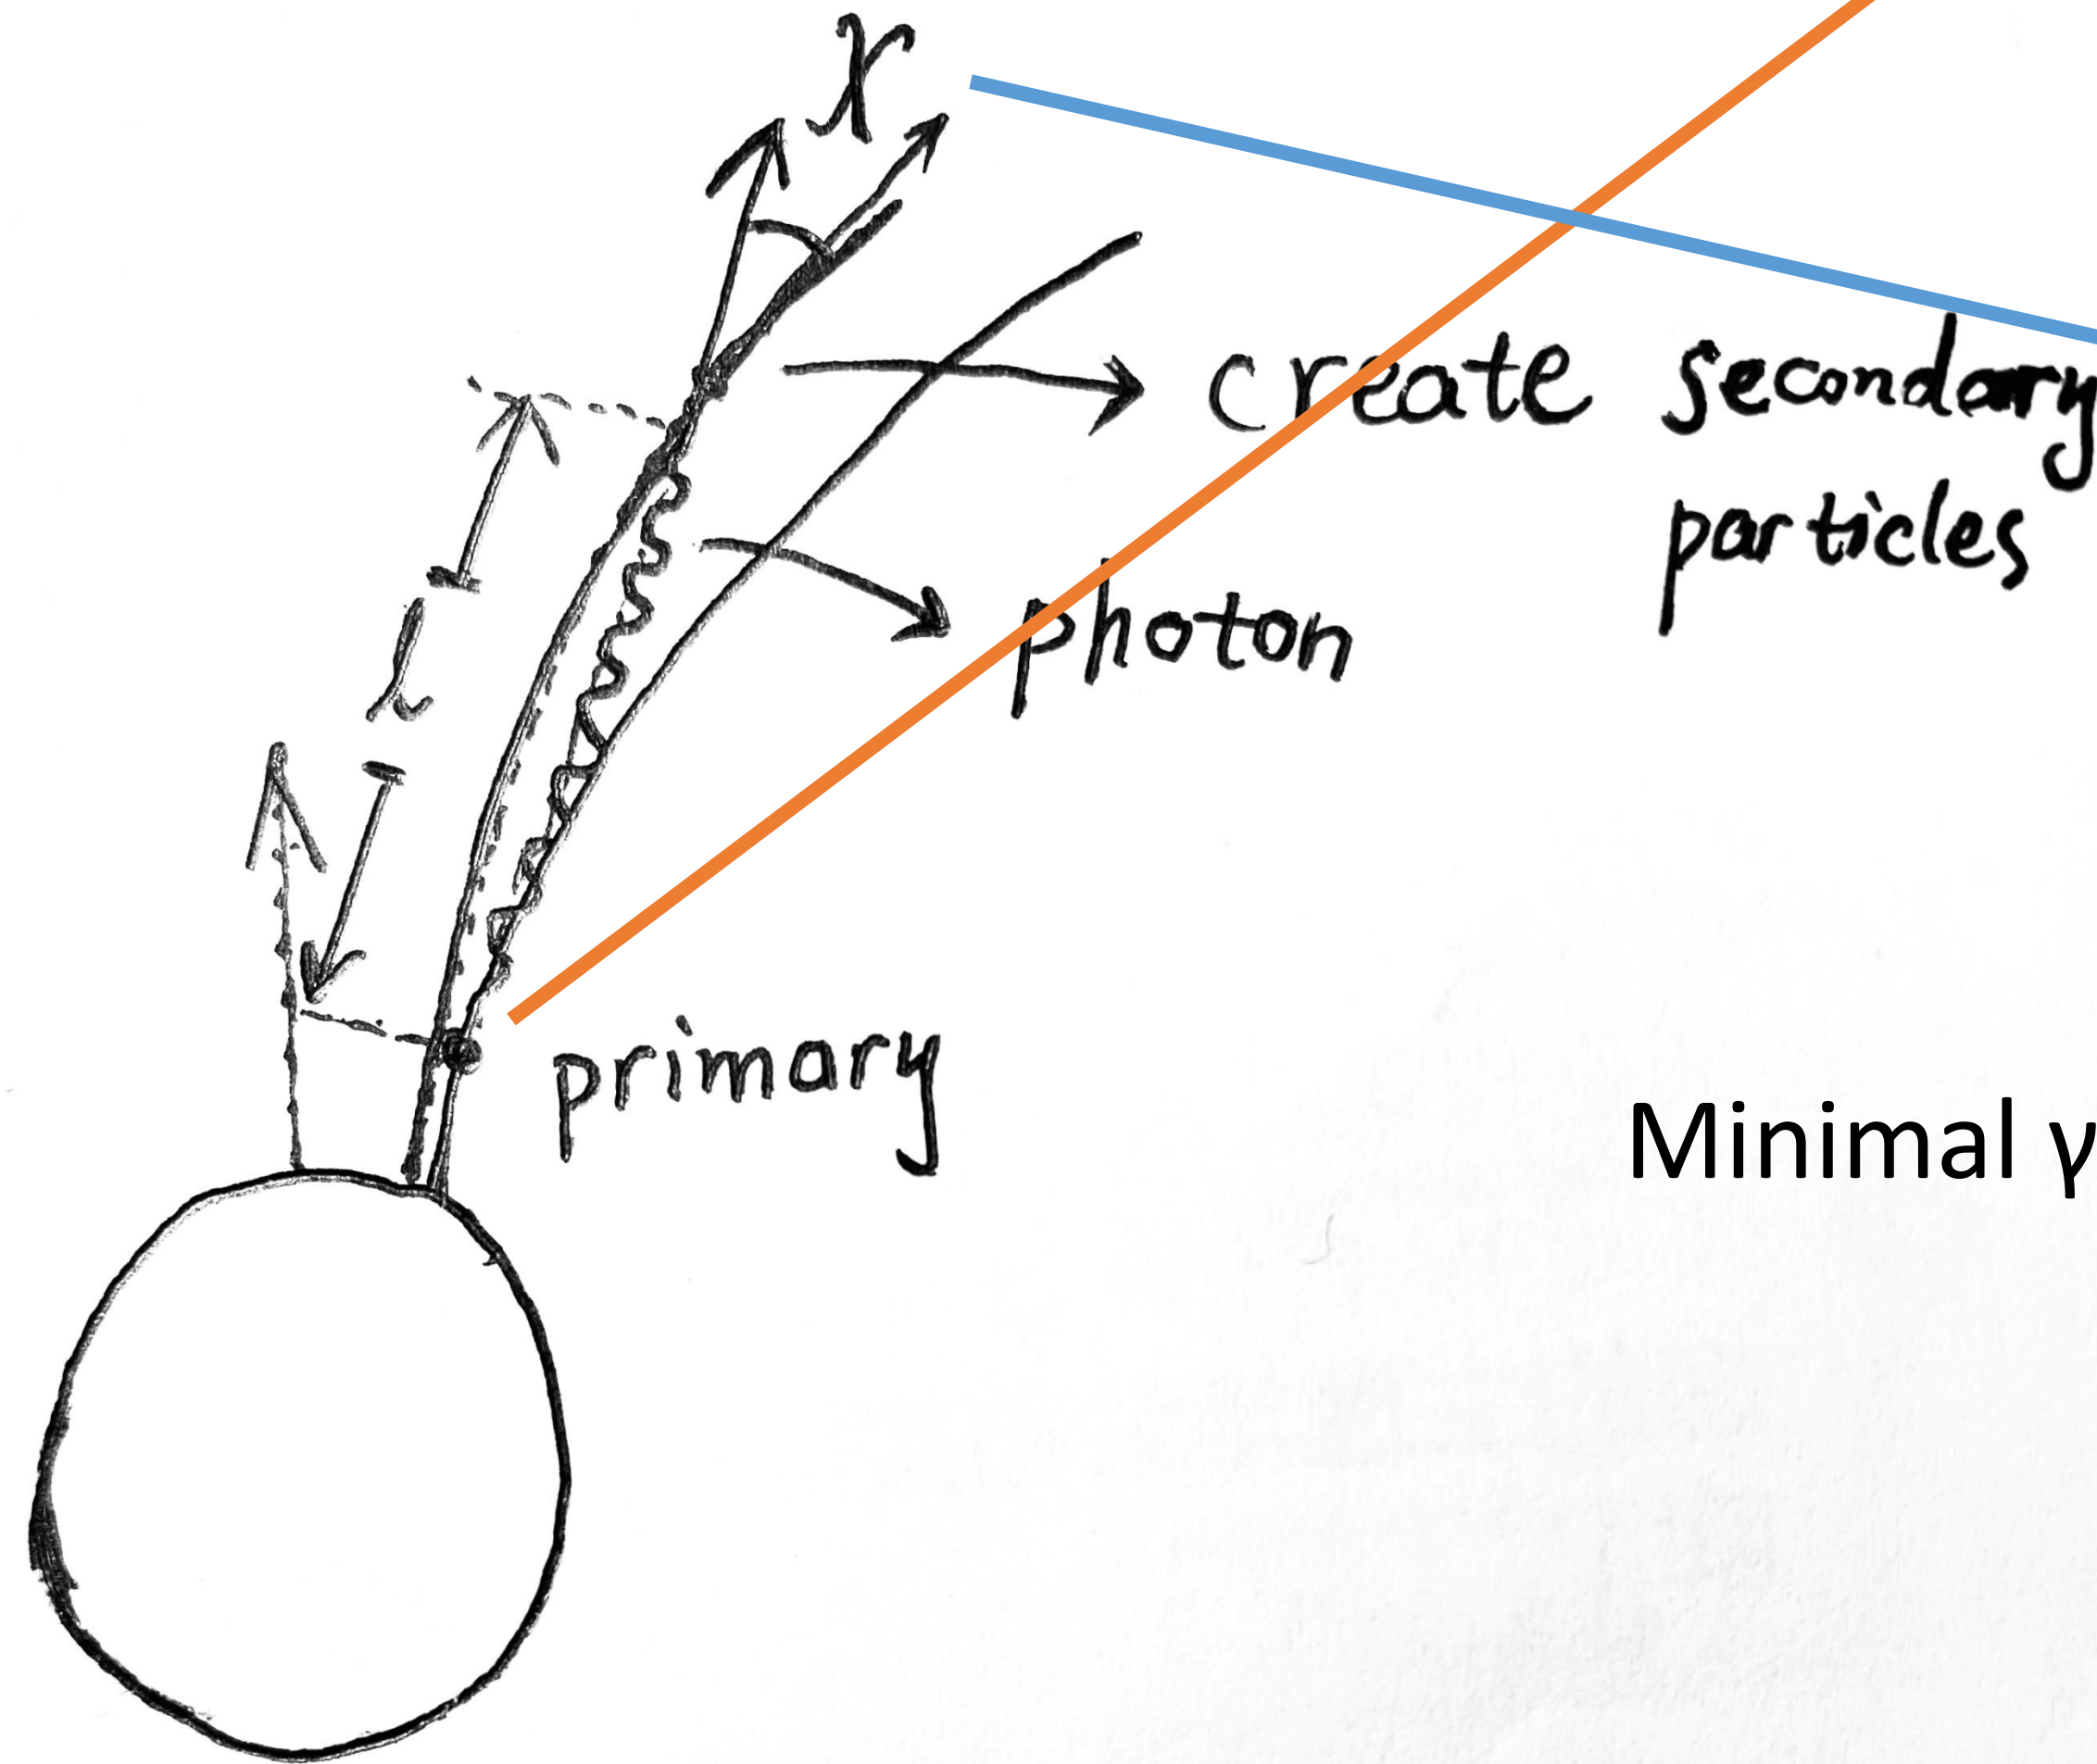 χ
create secondary
particles
photon
l
primary
Minimal γ